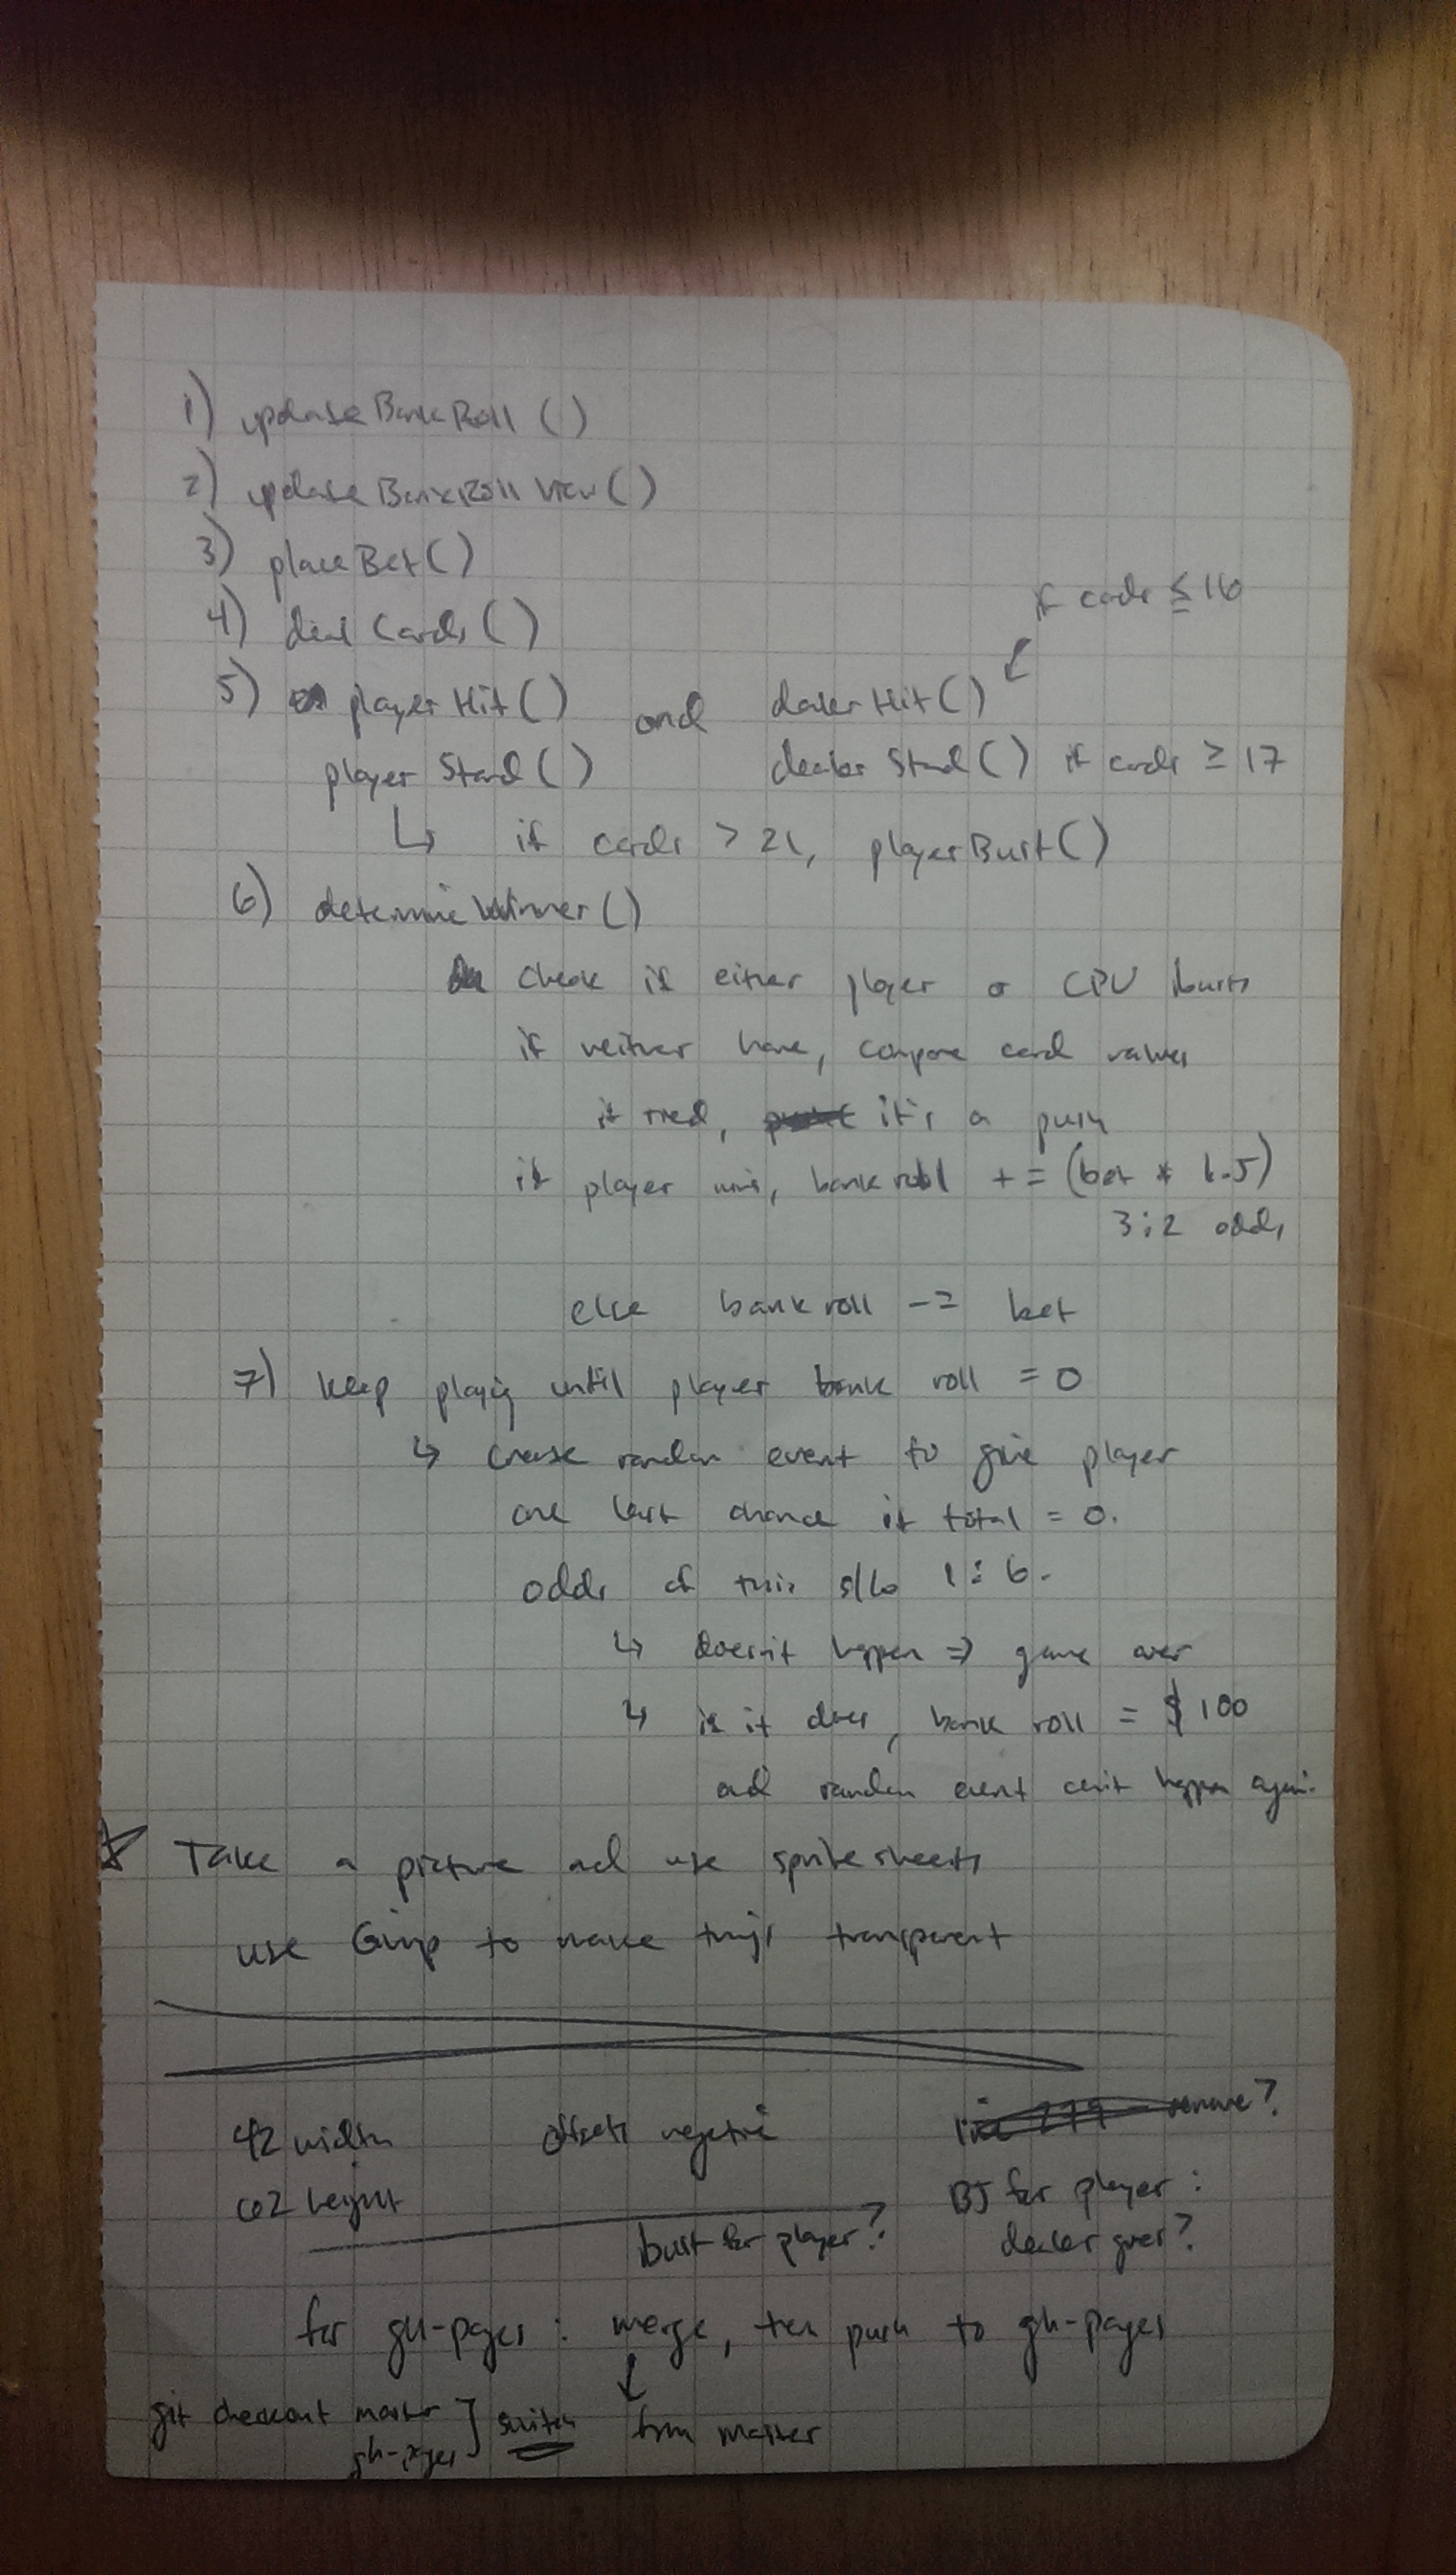 1) updateBankRoll ()
2) updateBankRoll View()
3) placeBet()
4) deal Cards()
if cards ≤ 16
5) playerHit() and dealerHit()
player Stand() dealer Stand() if cards ≥ 17
↳ if cards > 21, playerBust()
6) determineWinner()
check if either player or CPU busts
if neither have, compare card values
if tied, it's a push
if player wins, bank roll += (bet * 1.5)
3:2 odds
else bank roll -= bet
7) keep playing until player bank roll = 0
↳ create random event to give player
one last chance if total = 0.
odds of this s/b 1:6.
↳ doesn't happen ⇒ game over
↳ if it does, bank roll = $100
and random event can't happen again.
☆ Take a picture and use sprite sheets
use Gimp to make things transparent
42 width offsets negative line 279 remove?
62 height BJ for player:
bust for player? dealer goes?
for gh-pages: merge, then push to gh-pages
↓
git checkout master ] switch from master
gh-pages